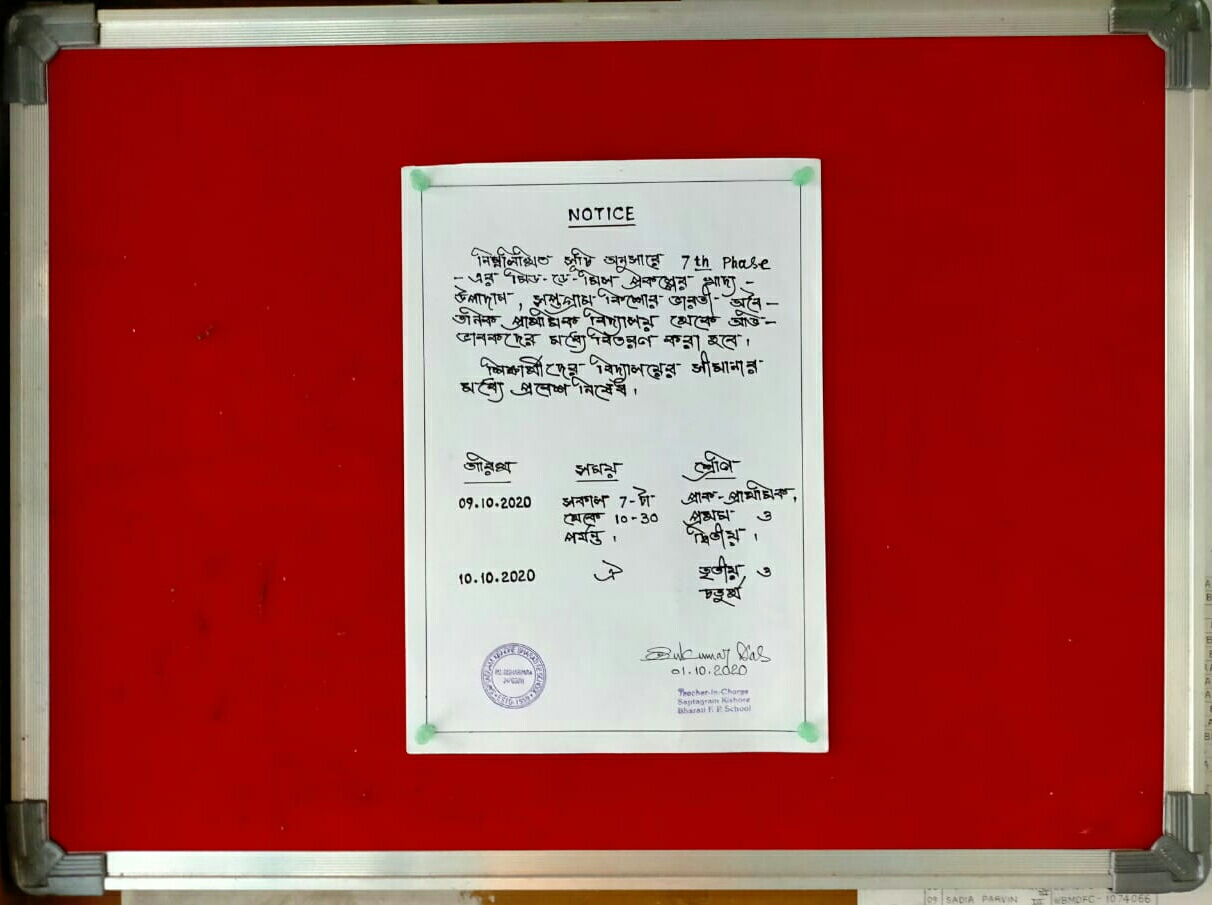 NOTICE
নিম্নলিখিত সূচি অনুসারে 7th Phase
-এর মিড-ডে-মিল প্রকল্পের খাদ্য-
উপাদান, সপ্তগ্রাম কিশোর ভারতী অবৈ-
তনিক প্রাথমিক বিদ্যালয় থেকে অভি-
ভাবকদের মধ্যে বিতরণ করা হবে।
শিক্ষার্থীদের বিদ্যালয়ের সীমানার
মধ্যে প্রবেশ নিষেধ।
তারিখ সময় শ্রেণি
09.10.2020 সকাল 7-টা প্রাক-প্রাথমিক,
থেকে 10-30 প্রথম ও
পর্যন্ত। দ্বিতীয়।
10.10.2020 ঐ তৃতীয় ও
চতুর্থ
Sukumar Das
01.10.2020
Teacher-in-Charge
Saptagram Kishore
Bharati F. P. School
ESTD-1959
09 SADIA PARVIN VI WBMDFC-1074066